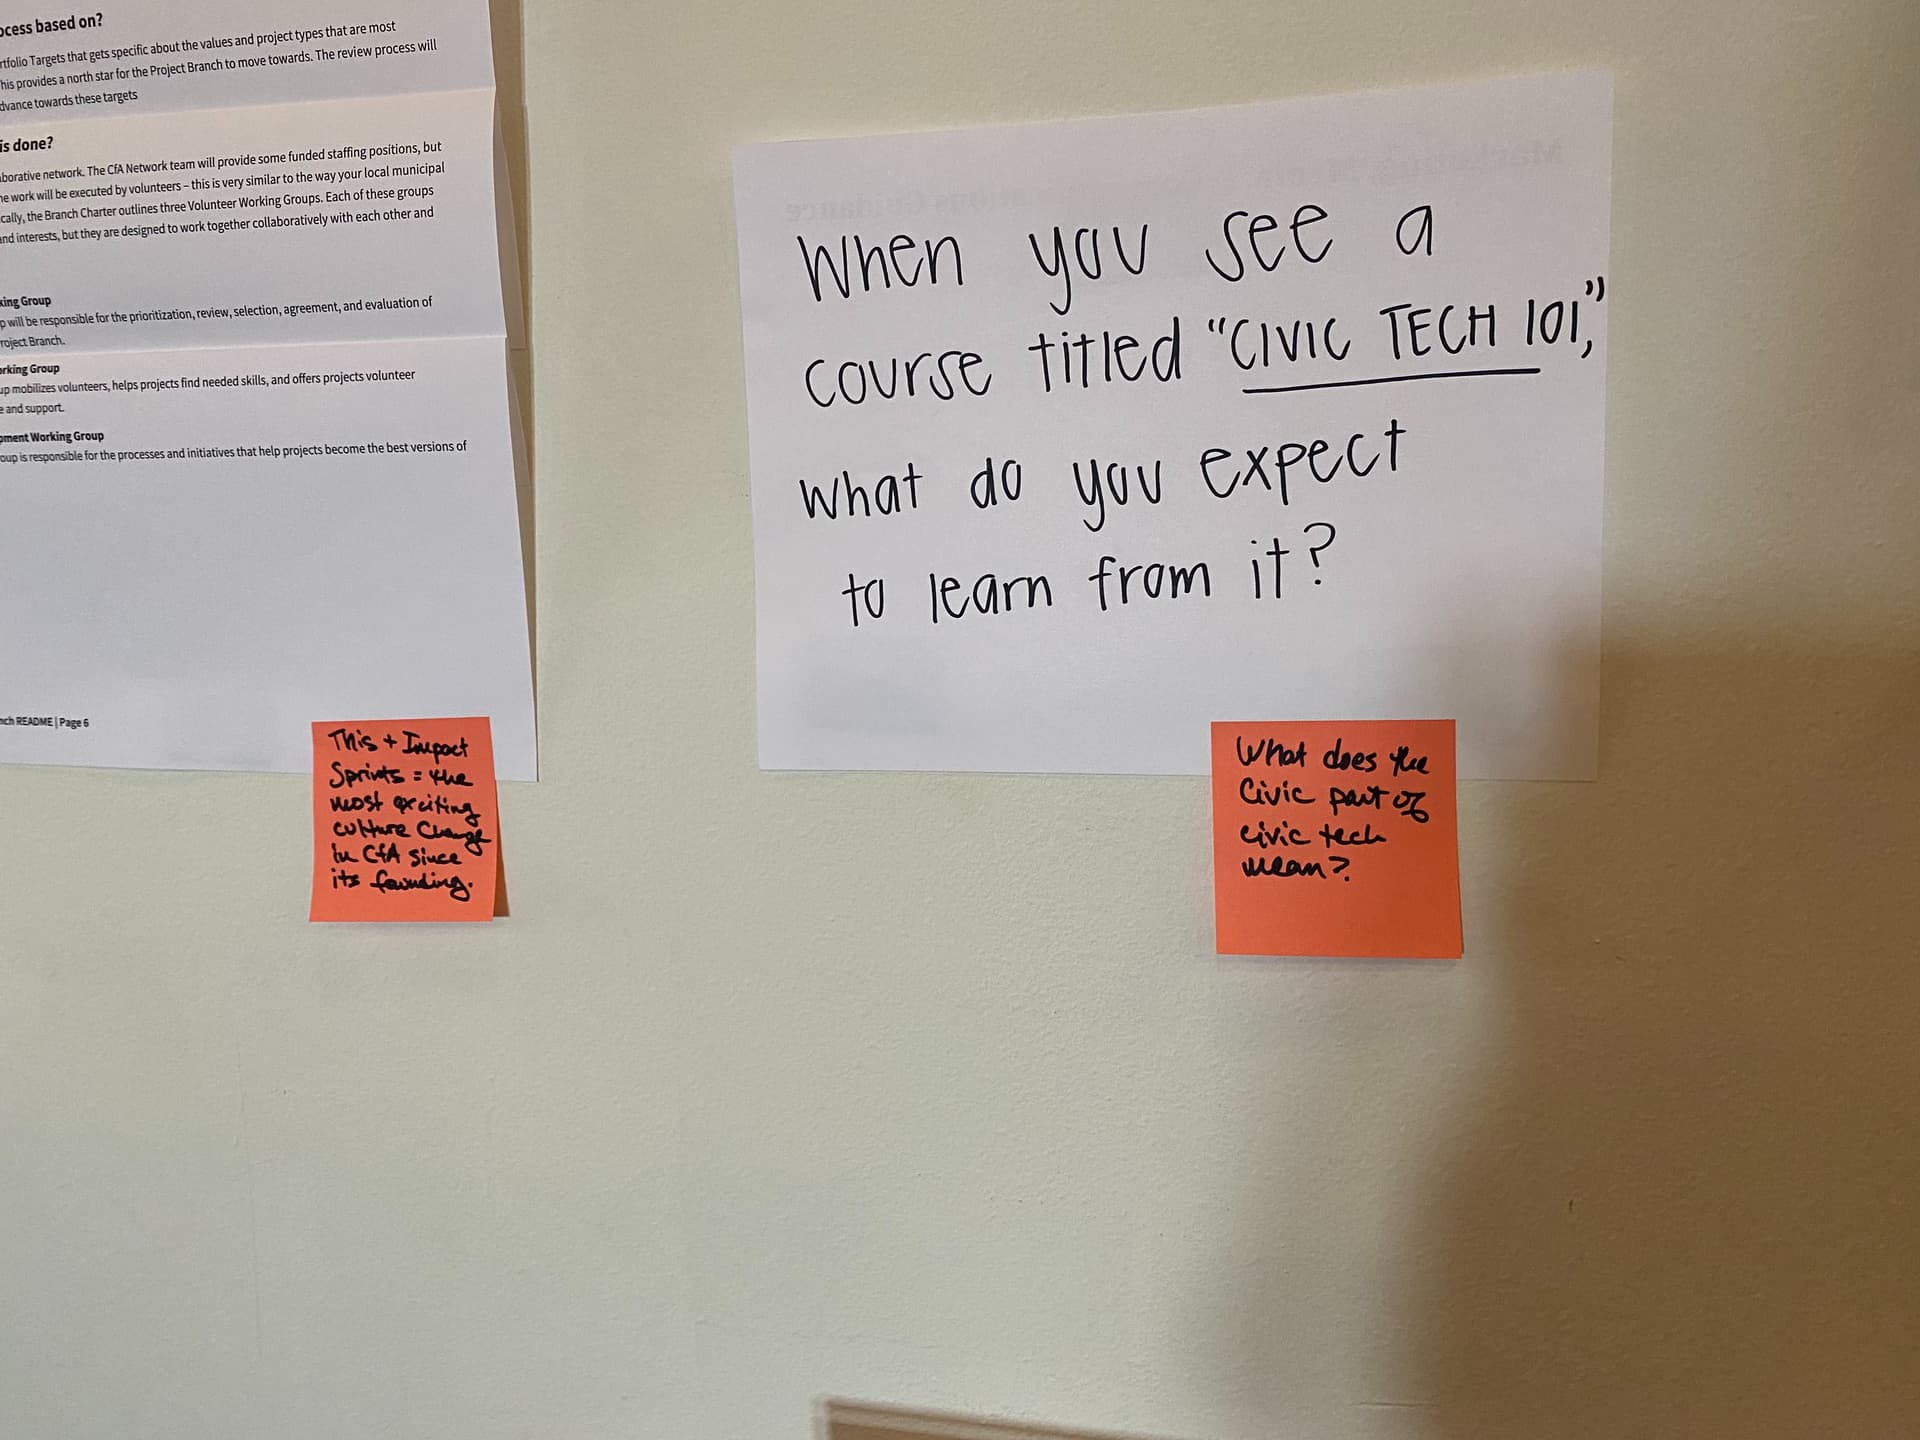 ocess based on?
rtfolio Targets that gets specific about the values and project types that are most
his provides a north star for the Project Branch to move towards. The review process will
dvance towards these targets
is done?
aborative network. The CfA Network team will provide some funded staffing positions, but
he work will be executed by volunteers – this is very similar to the way your local municipal
cally, the Branch Charter outlines three Volunteer Working Groups. Each of these groups
and interests, but they are designed to work together collaboratively with each other and
king Group
p will be responsible for the prioritization, review, selection, agreement, and evaluation of
roject Branch.
orking Group
up mobilizes volunteers, helps projects find needed skills, and offers projects volunteer
e and support.
pment Working Group
oup is responsible for the processes and initiatives that help projects become the best versions of
nch README | Page 6
This + Impact
Sprints = the
most exciting
culture change
in CfA since
its founding.
When you see a
course titled "CIVIC TECH 101,"
what do you expect
to learn from it?
What does the
Civic part of
civic tech
mean?